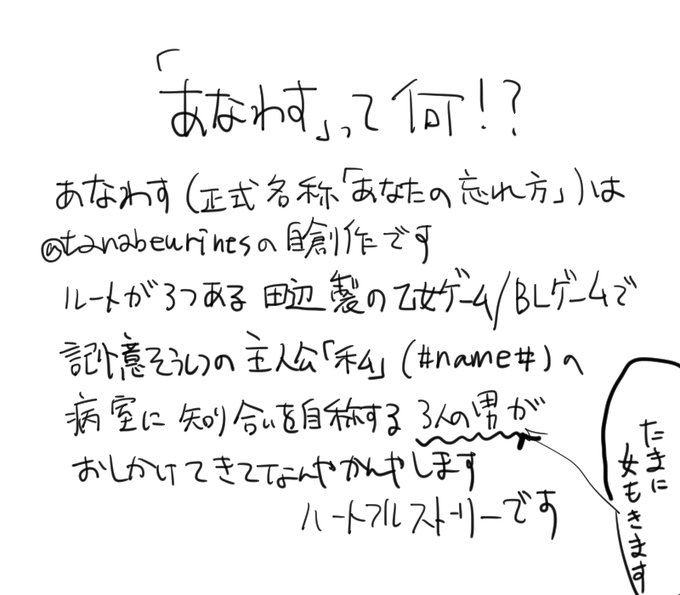 「あなわす」って何!?
あなわす(正式名称「あなたの忘れ方」)は
@tanabeurinesの自創作です
ルートが3つある田辺製の乙女ゲーム/BLゲームで
記憶そうしつの主人公「私」(#name#)の
病室に知り合いを自称する3人の男が
おしかけてきてなんやかんやします
ハートフルストーリーです
たまに
女もきます